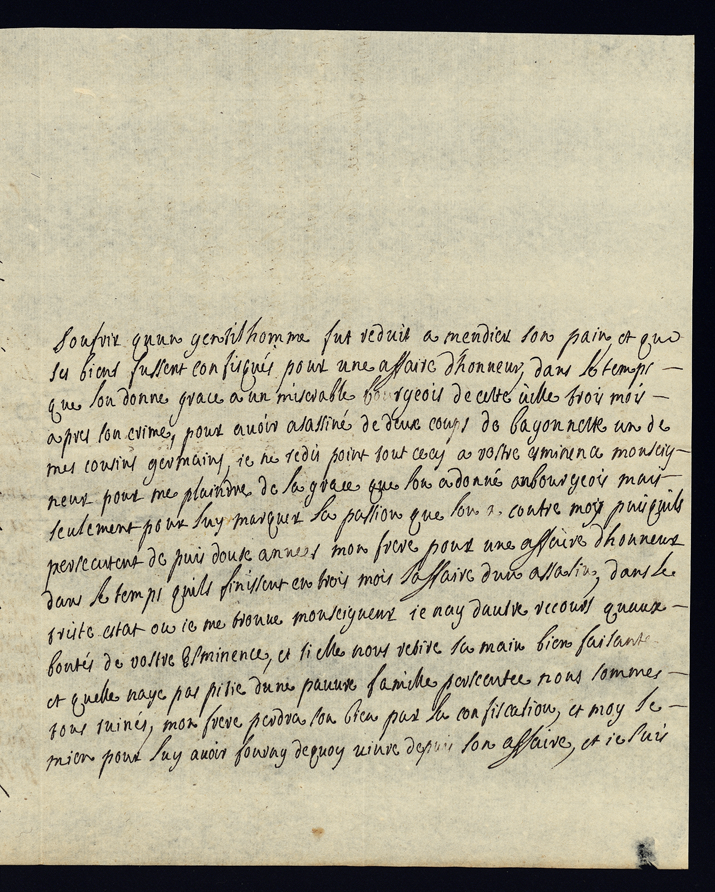 soufrir quun gentilhomme fut reduit a mendier son pain et que
ses biens fussent confisqués pour une affaire dhonneur, dans le temps —
que lon donne grace a un miserable bourgeois de cette uille trois mois —
apres son crime, pour auoir asassiné de deux coups de bayonnette un de
mes cousins germains, ie ne redis point tout cecy a vostre esminence monseig-
neur pour me plaindre de la grace que lon a donné au bourgeois mais
seulement pour luy marquer la passion que lon a contre moy puisquils
persecutent de puis douse annees mon frere pour une affaire dhonneur
dans le temps quils finissent en trois mois laffaire dun assasin, dans le
triste estat ou ie me trouue monseigneur ie nay dautre recours quaux —
bontés de vostre Esminence, et si elle nous retire sa main bien faisante
et quelle naye pas pitie dune pauure famille persecutee nous sommes —
tous ruinés, mon frere perdra son bien par la confiscation, et moy le —
mien pour luy auoir fourny dequoy uiure depuis son affaire, et ie suis